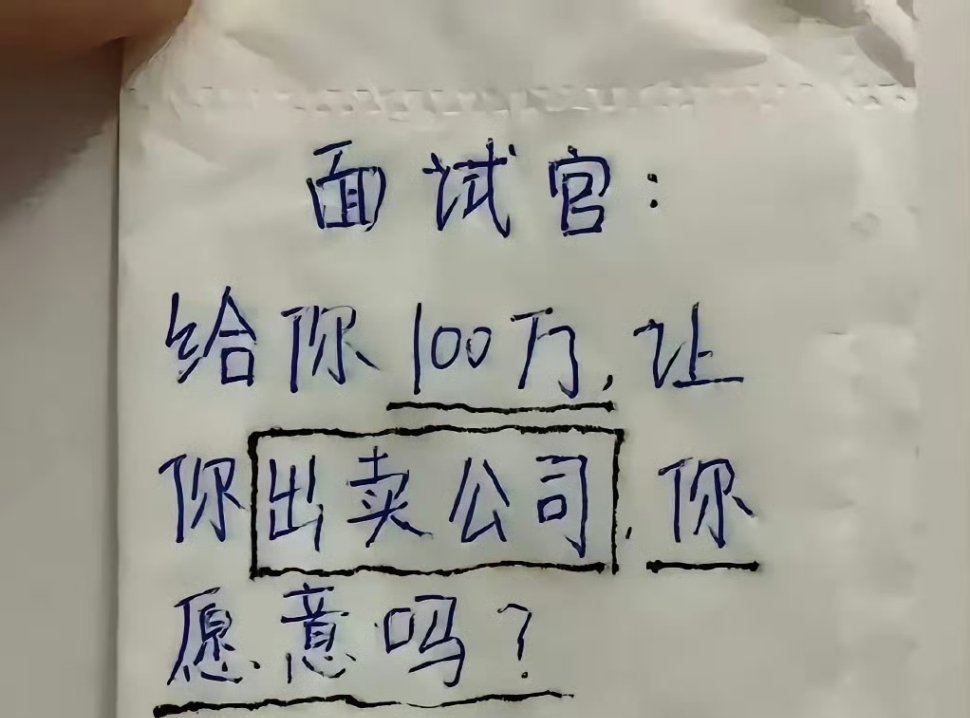 面试官:
给你100万,让
你出卖公司,你
愿意吗?